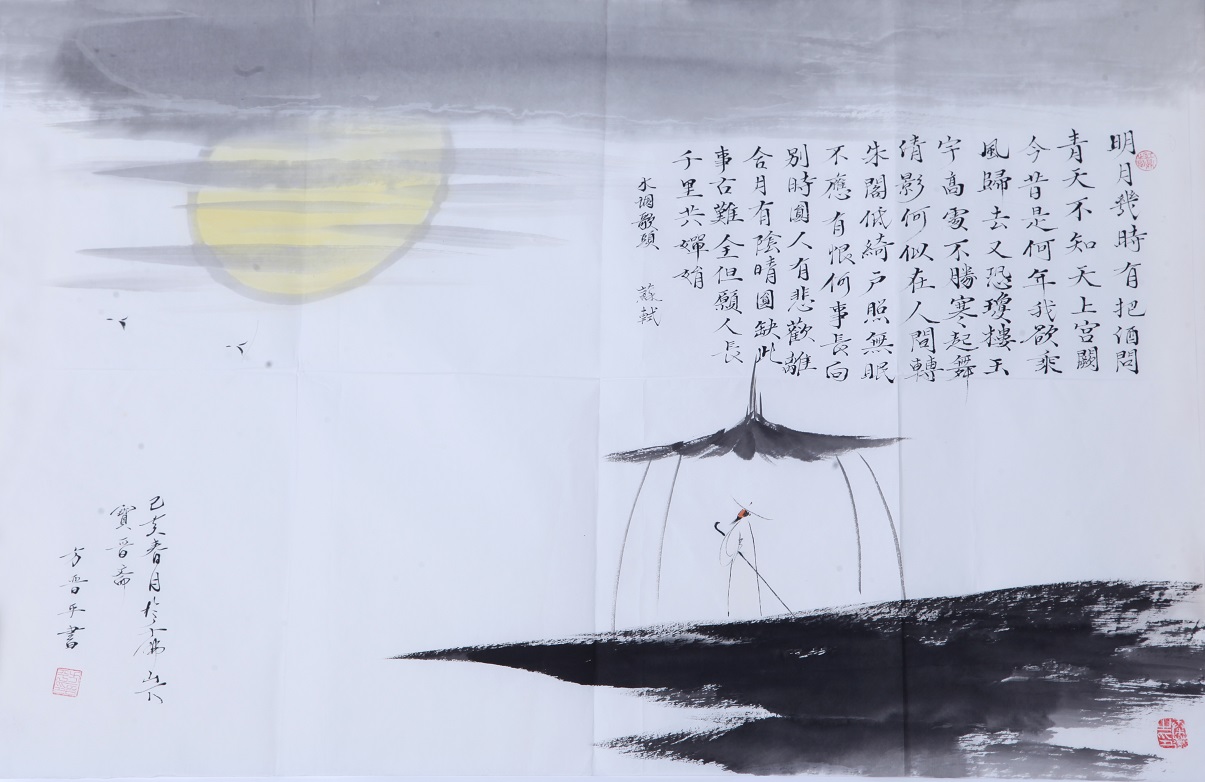 明月幾時有把酒問
青天不知天上宮闕
今昔是何年我欲乘
風歸去又恐瓊樓玉
宇高處不勝寒起舞
倩影何似在人間轉
朱閣低綺戶照無眠
不應有恨何事長向
別時圓人有悲歡離
合月有陰晴圓缺此
事古難全但願人長
千里共嬋娟
水調歌頭 蘇軾
己亥春月於佛山下
寶晉齋
方晉平書